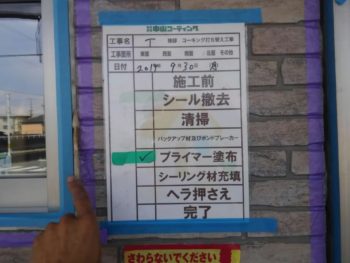 中山コーティング
工事名 T 様邸 コーキング打ち替え工事
工事箇所 東面 西面 南面 北面 その他
日付 2019年 9月30日
施工前
シール撤去
清掃
バックアップ材及びボンドブレーカー
✓ プライマー塗布
シーリング材充填
ヘラ押さえ
完了
さわらないでください